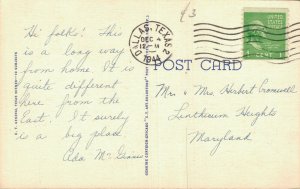 Hi folks! This
is a long way
from home. It is
quite different
here from the
East. It surely
is a big place.
Ada Mc
DALLAS, TEXAS
DEC
12 M
1944
1 CENT 1
POST CARD
Mr & Mrs. Herbert Cromwell
Linthicum Heights
Maryland